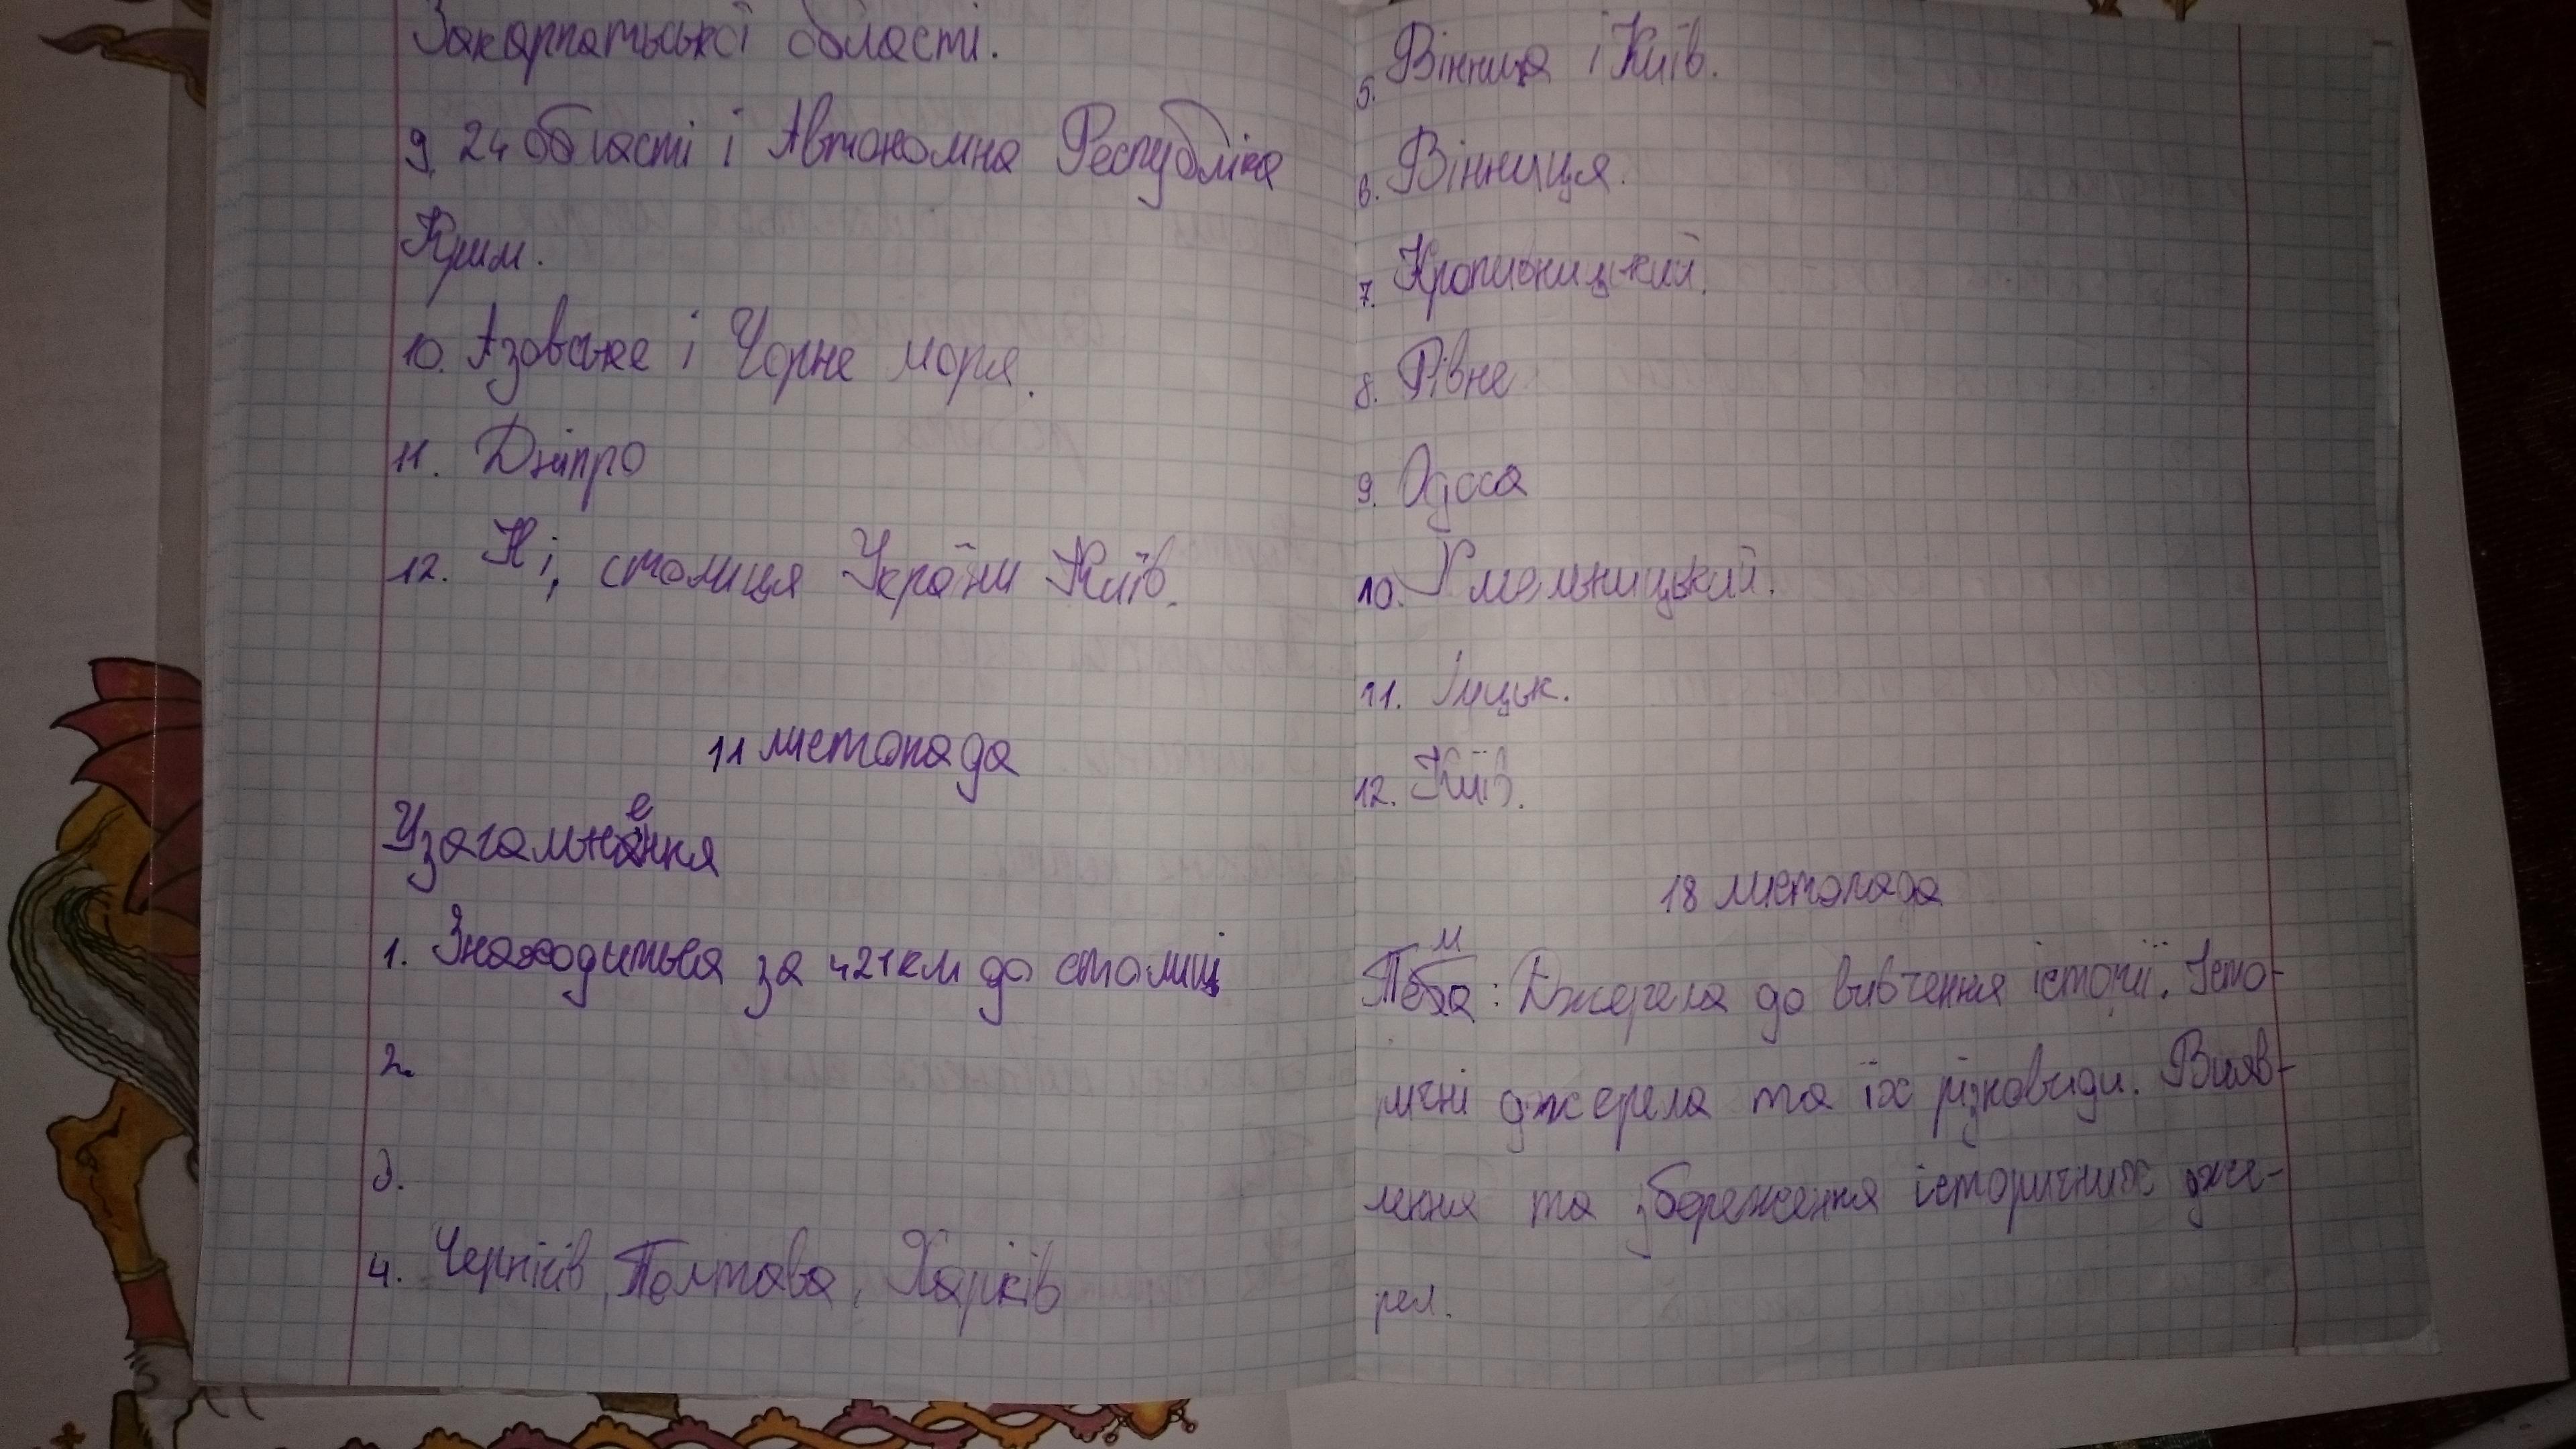 Закарпатської області.
9. 24 області і Автономна Республіка
Крим.
10. Азовське і Чорне моря.
11. Дніпро
12. Ні, столиця України Київ.
11 листопада
Узагальнення
1. Знаходиться за 421км до столиці
2.
3.
4. Чернігів, Полтава, Харків
5. Вінниця і Київ.
6. Вінниця.
7. Кропивницький.
8. Рівне
9. Одеса
10. Хмельницький.
11. Луцьк.
12. Київ.
18 листопада
Тема: Джерела до вивчення історії. Істо-
ричні джерела та їх різновиди. Вияв-
лення та збереження історичних дже-
рел.